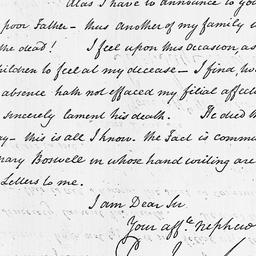 Alas I have to announce to you
poor Father - thus another of my family i
the dead! I feel upon this occasion, as
children to feel at my decease - I find, how
absence hath not effaced my filial affect
sincerely lament his death. He died th
ay - this is all I know. The Fact is commu
mary Boswell in whose hand writing are
Letters to me.
I am Dear Sir
Your aff.te Nephew